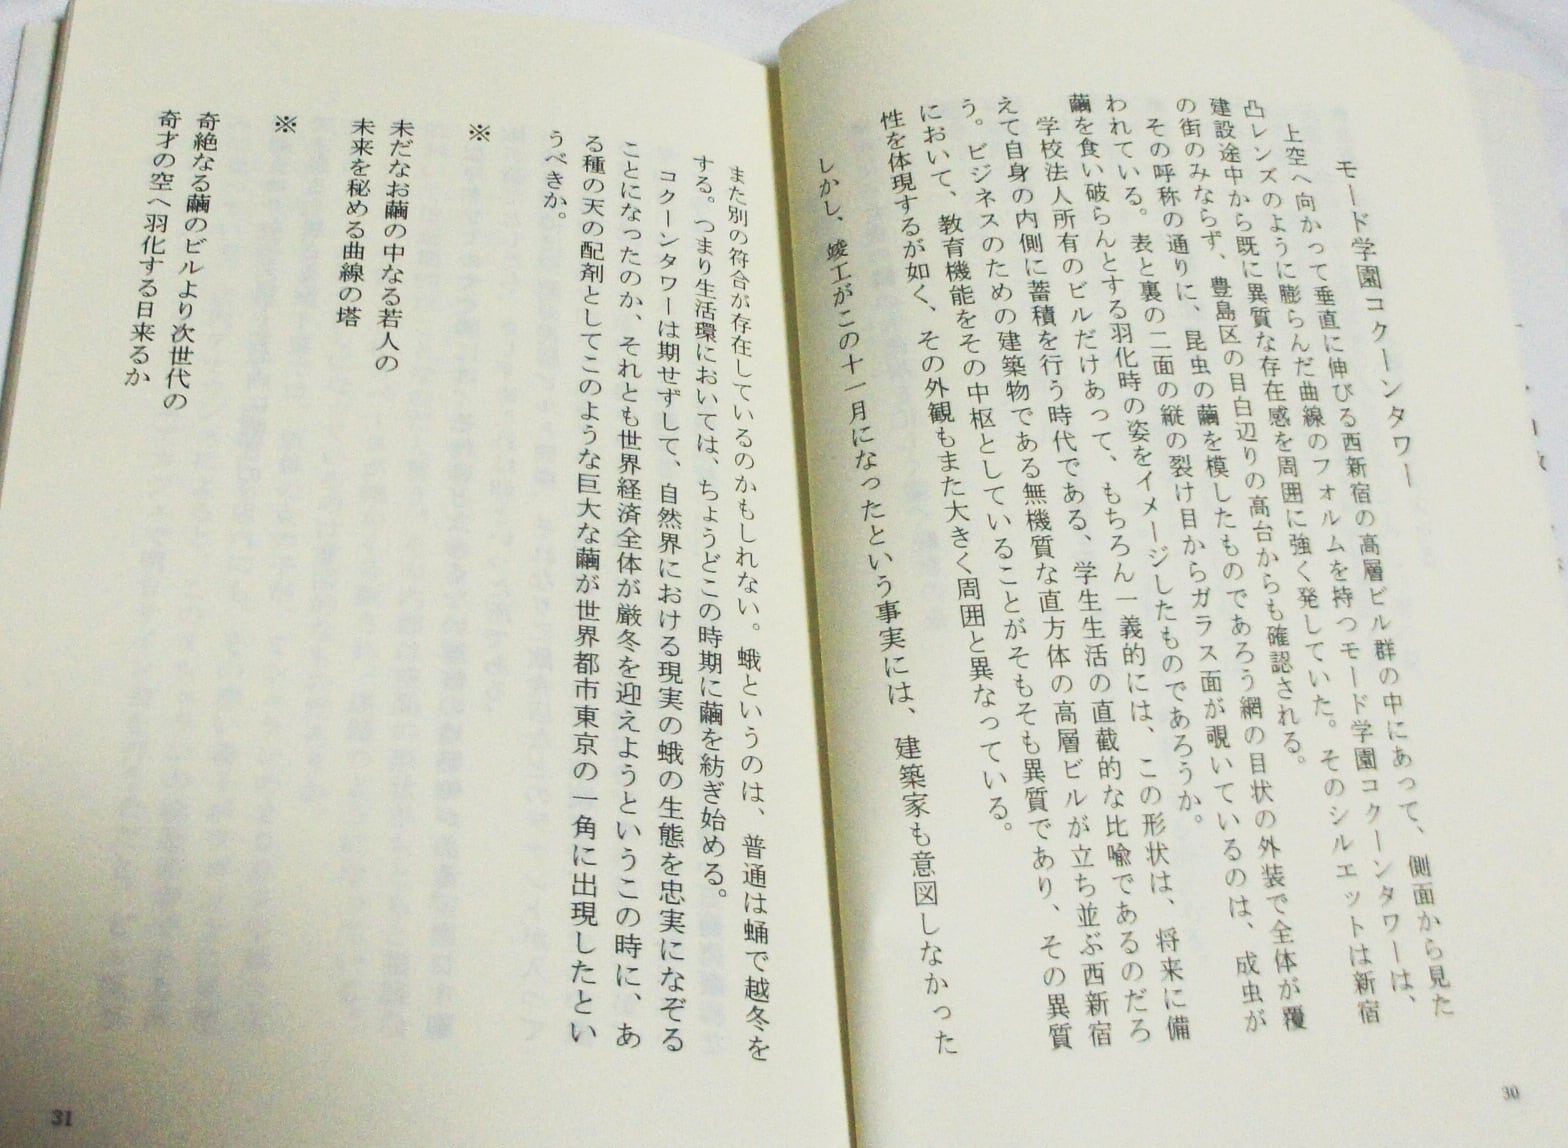 モード学園コクーンタワー
上空へ向かって垂直に伸びる西新宿の高層ビル群の中にあって、側面から見た
凸レンズのように膨らんだ曲線のフォルムを持つモード学園コクーンタワーは、
建設途中から既に異質な存在感を周囲に強く発していた。そのシルエットは新宿
の街のみならず、豊島区の目白辺りの高台からも確認される。
その呼称の通りに、昆虫の繭を模したものであろう網の目状の外装で全体が覆
われている。表と裏の二面の縦の裂け目からガラス面が覗いているのは、成虫が
繭を食い破らんとする羽化時の姿をイメージしたものであろうか。
学校法人所有のビルだけあって、もちろん一義的には、この形状は、将来に備
えて自身の内側に蓄積を行う時代である、学生生活の直截的な比喩であるのだろ
う。ビジネスのための建築物である無機質な直方体の高層ビルが立ち並ぶ西新宿
において、教育機能をその中枢としていることがそもそも異質であり、その異質
性を体現するが如く、その外観もまた大きく周囲と異なっている。
しかし、竣工がこの十一月になったという事実には、建築家も意図しなかった
30
また別の符合が存在しているのかもしれない。蛾というのは、普通は蛹で越冬を
する。つまり生活環においては、ちょうどこの時期に繭を紡ぎ始める。
コクーンタワーは期せずして、自然界における現実の蛾の生態を忠実になぞる
ことになったのか、それとも世界経済全体が厳冬を迎えようというこの時に、あ
る種の天の配剤としてこのような巨大な繭が世界都市東京の一角に出現したとい
うべきか。
※
未だなお繭の中なる若人の
未来を秘める曲線の塔
※
奇絶なる繭のビルより次世代の
奇才の空へ羽化する日来るか
31